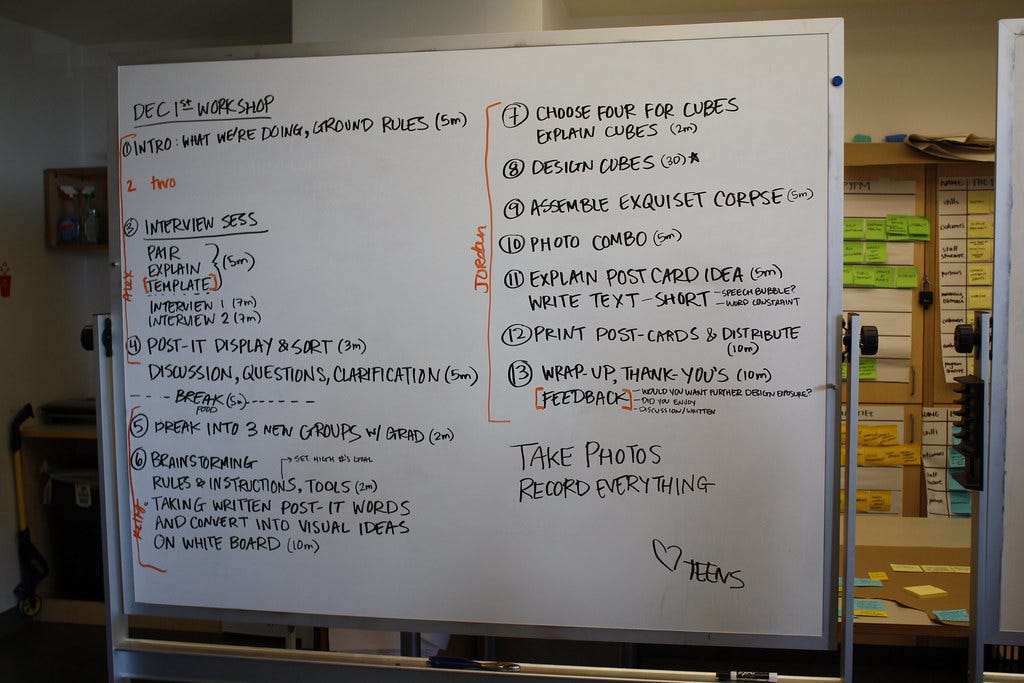 DEC 1st WORKSHOP
① INTRO: WHAT WE'RE DOING, GROUND RULES (5m)
2 two
③ INTERVIEW SESS
PAIR
EXPLAIN
[TEMPLATE] } (5m)
INTERVIEW 1 (7m)
INTERVIEW 2 (7m)
④ POST-IT DISPLAY & SORT (3m)
DISCUSSION, QUESTIONS, CLARIFICATION (5m)
--- BREAK (5m) ------
FOOD
⑤ BREAK INTO 3 NEW GROUPS W/ GRAD (2m)
⑥ BRAINSTORMING
→ SET HIGH #'S GOAL
RULES & INSTRUCTIONS, TOOLS (2m)
TAKING WRITTEN POST-IT WORDS
AND CONVERT INTO VISUAL IDEAS
ON WHITE BOARD (10m)
ALEX
JORDAN
⑦ CHOOSE FOUR FOR CUBES
EXPLAIN CUBES (2m)
⑧ DESIGN CUBES (30)★
⑨ ASSEMBLE EXQUISET CORPSE (5m)
⑩ PHOTO COMBO (5m)
⑪ EXPLAIN POST CARD IDEA (5m)
WRITE TEXT - SHORT - SPEECH BUBBLE?
- WORD CONSTRAINT
⑫ PRINT POST-CARDS & DISTRIBUTE
(10m)
⑬ WRAP-UP, THANK-YOU'S (10m)
[FEEDBACK] - WOULD YOU WANT FURTHER DESIGN EXPOSURE?
- DID YOU ENJOY
- DISCUSSION/WRITTEN
TAKE PHOTOS
RECORD EVERYTHING
♡ TEENS
NAME
skills